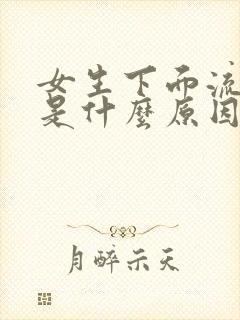 女生下面流
是什麼原因
月醉示天